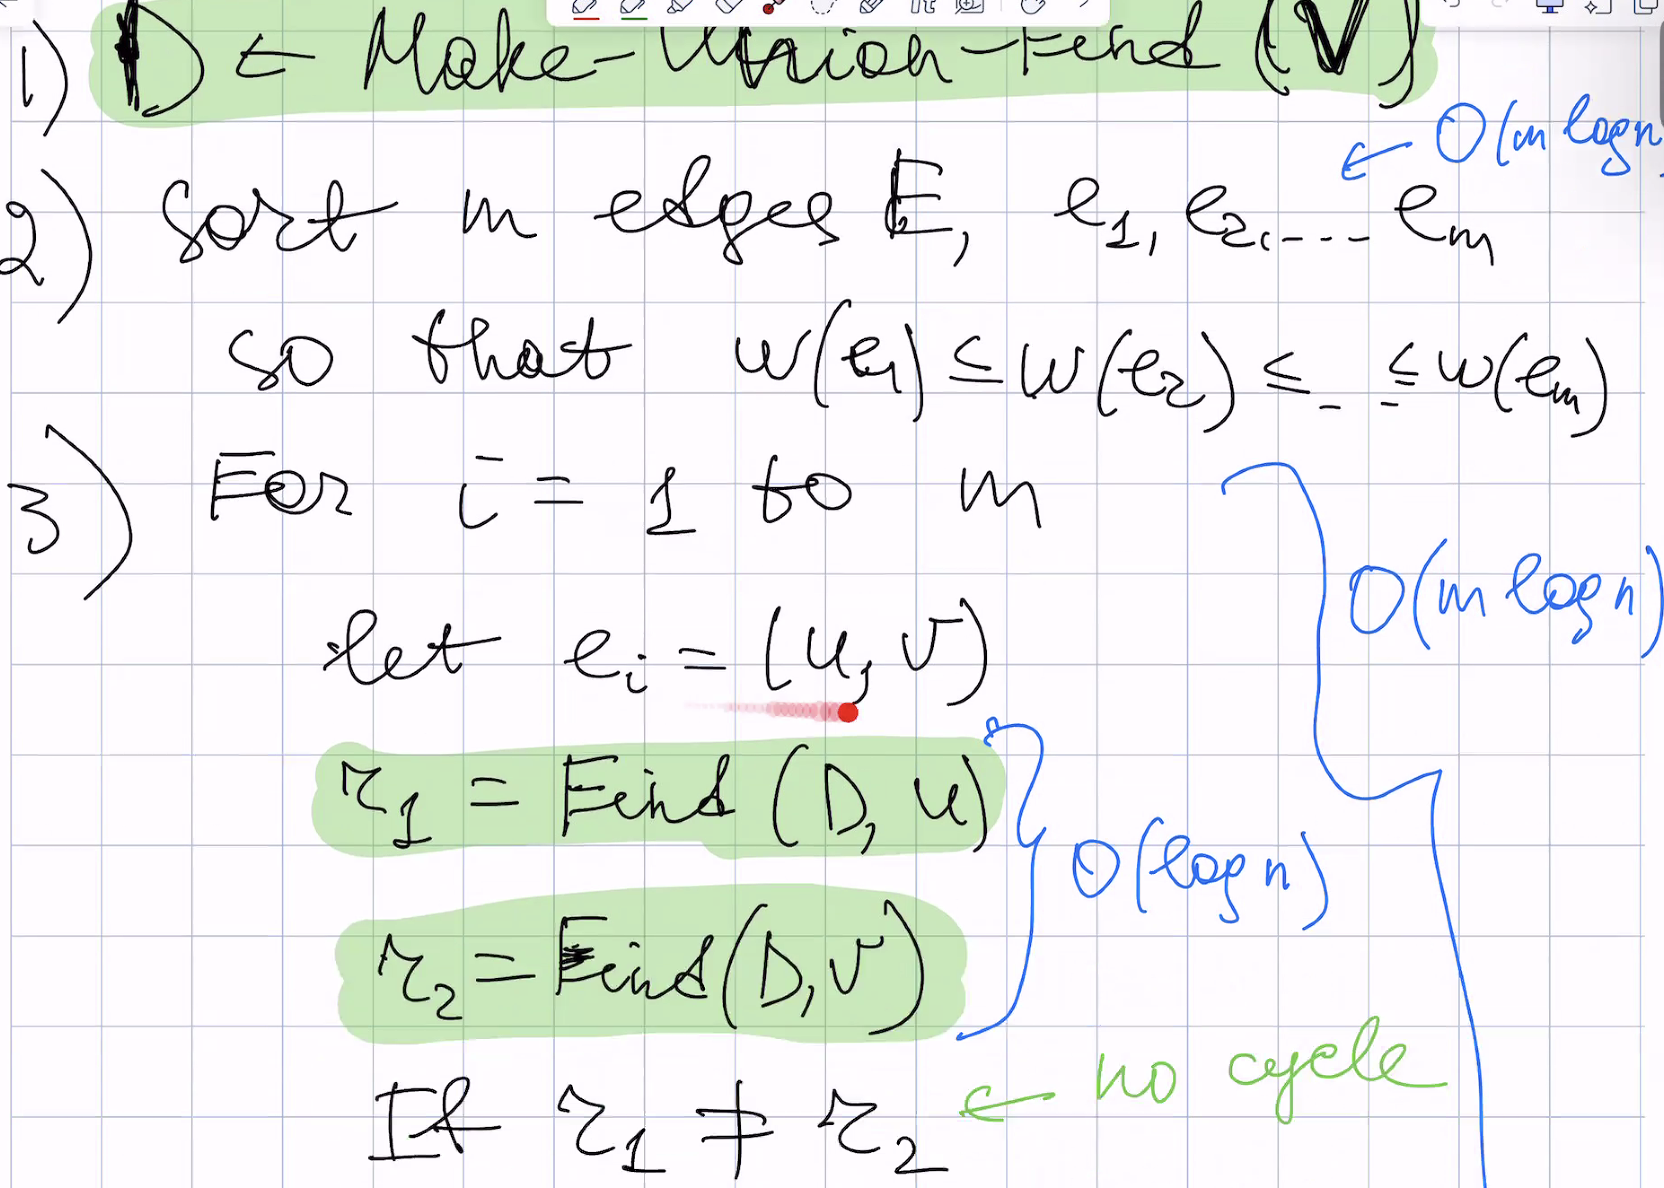 1) D ← Make-Union-Find (V)
← O(m log n)
2) sort m edges E, e1, e2, .... em
so that w(e1) ≤ w(e2) ≤ _ _ ≤ w(em)
3) For i = 1 to m
O(m log n)
let ei = (u, v)
r1 = Find (D, u)
O(log n)
r2 = Find (D, v)
If r1 ≠ r2 ← no cycle